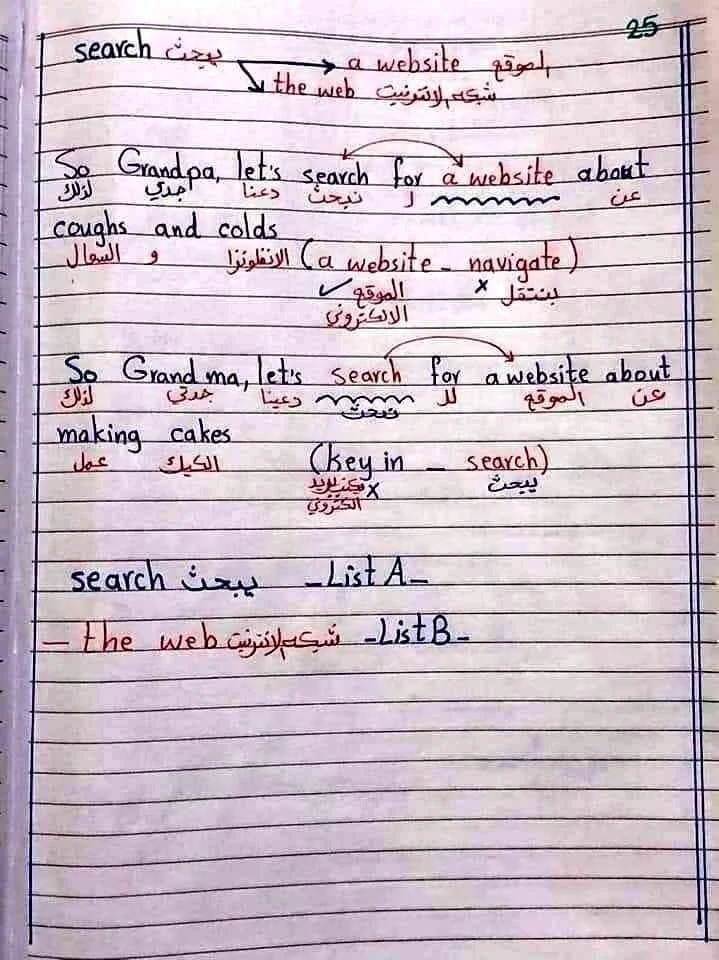 25
search يبحث → a website الموقع
the web شبكه الانترنيت
So Grandpa, let's search for a website about
لذلك جدي دعنا نبحث لـ عن
coughs and colds
السعال و الانفلونزا (a website - navigate)
✓ الموقع x ينتقل
الالكتروني
So Grandma, let's search for a website about
لذلك جدتي دعينا نبحث للـ الموقع عن
making cakes
عمل الكيك (key in - search)
x يبحث
الكتروني
search يبحث -List A-
- the web شبكه الانترنيت -List B-